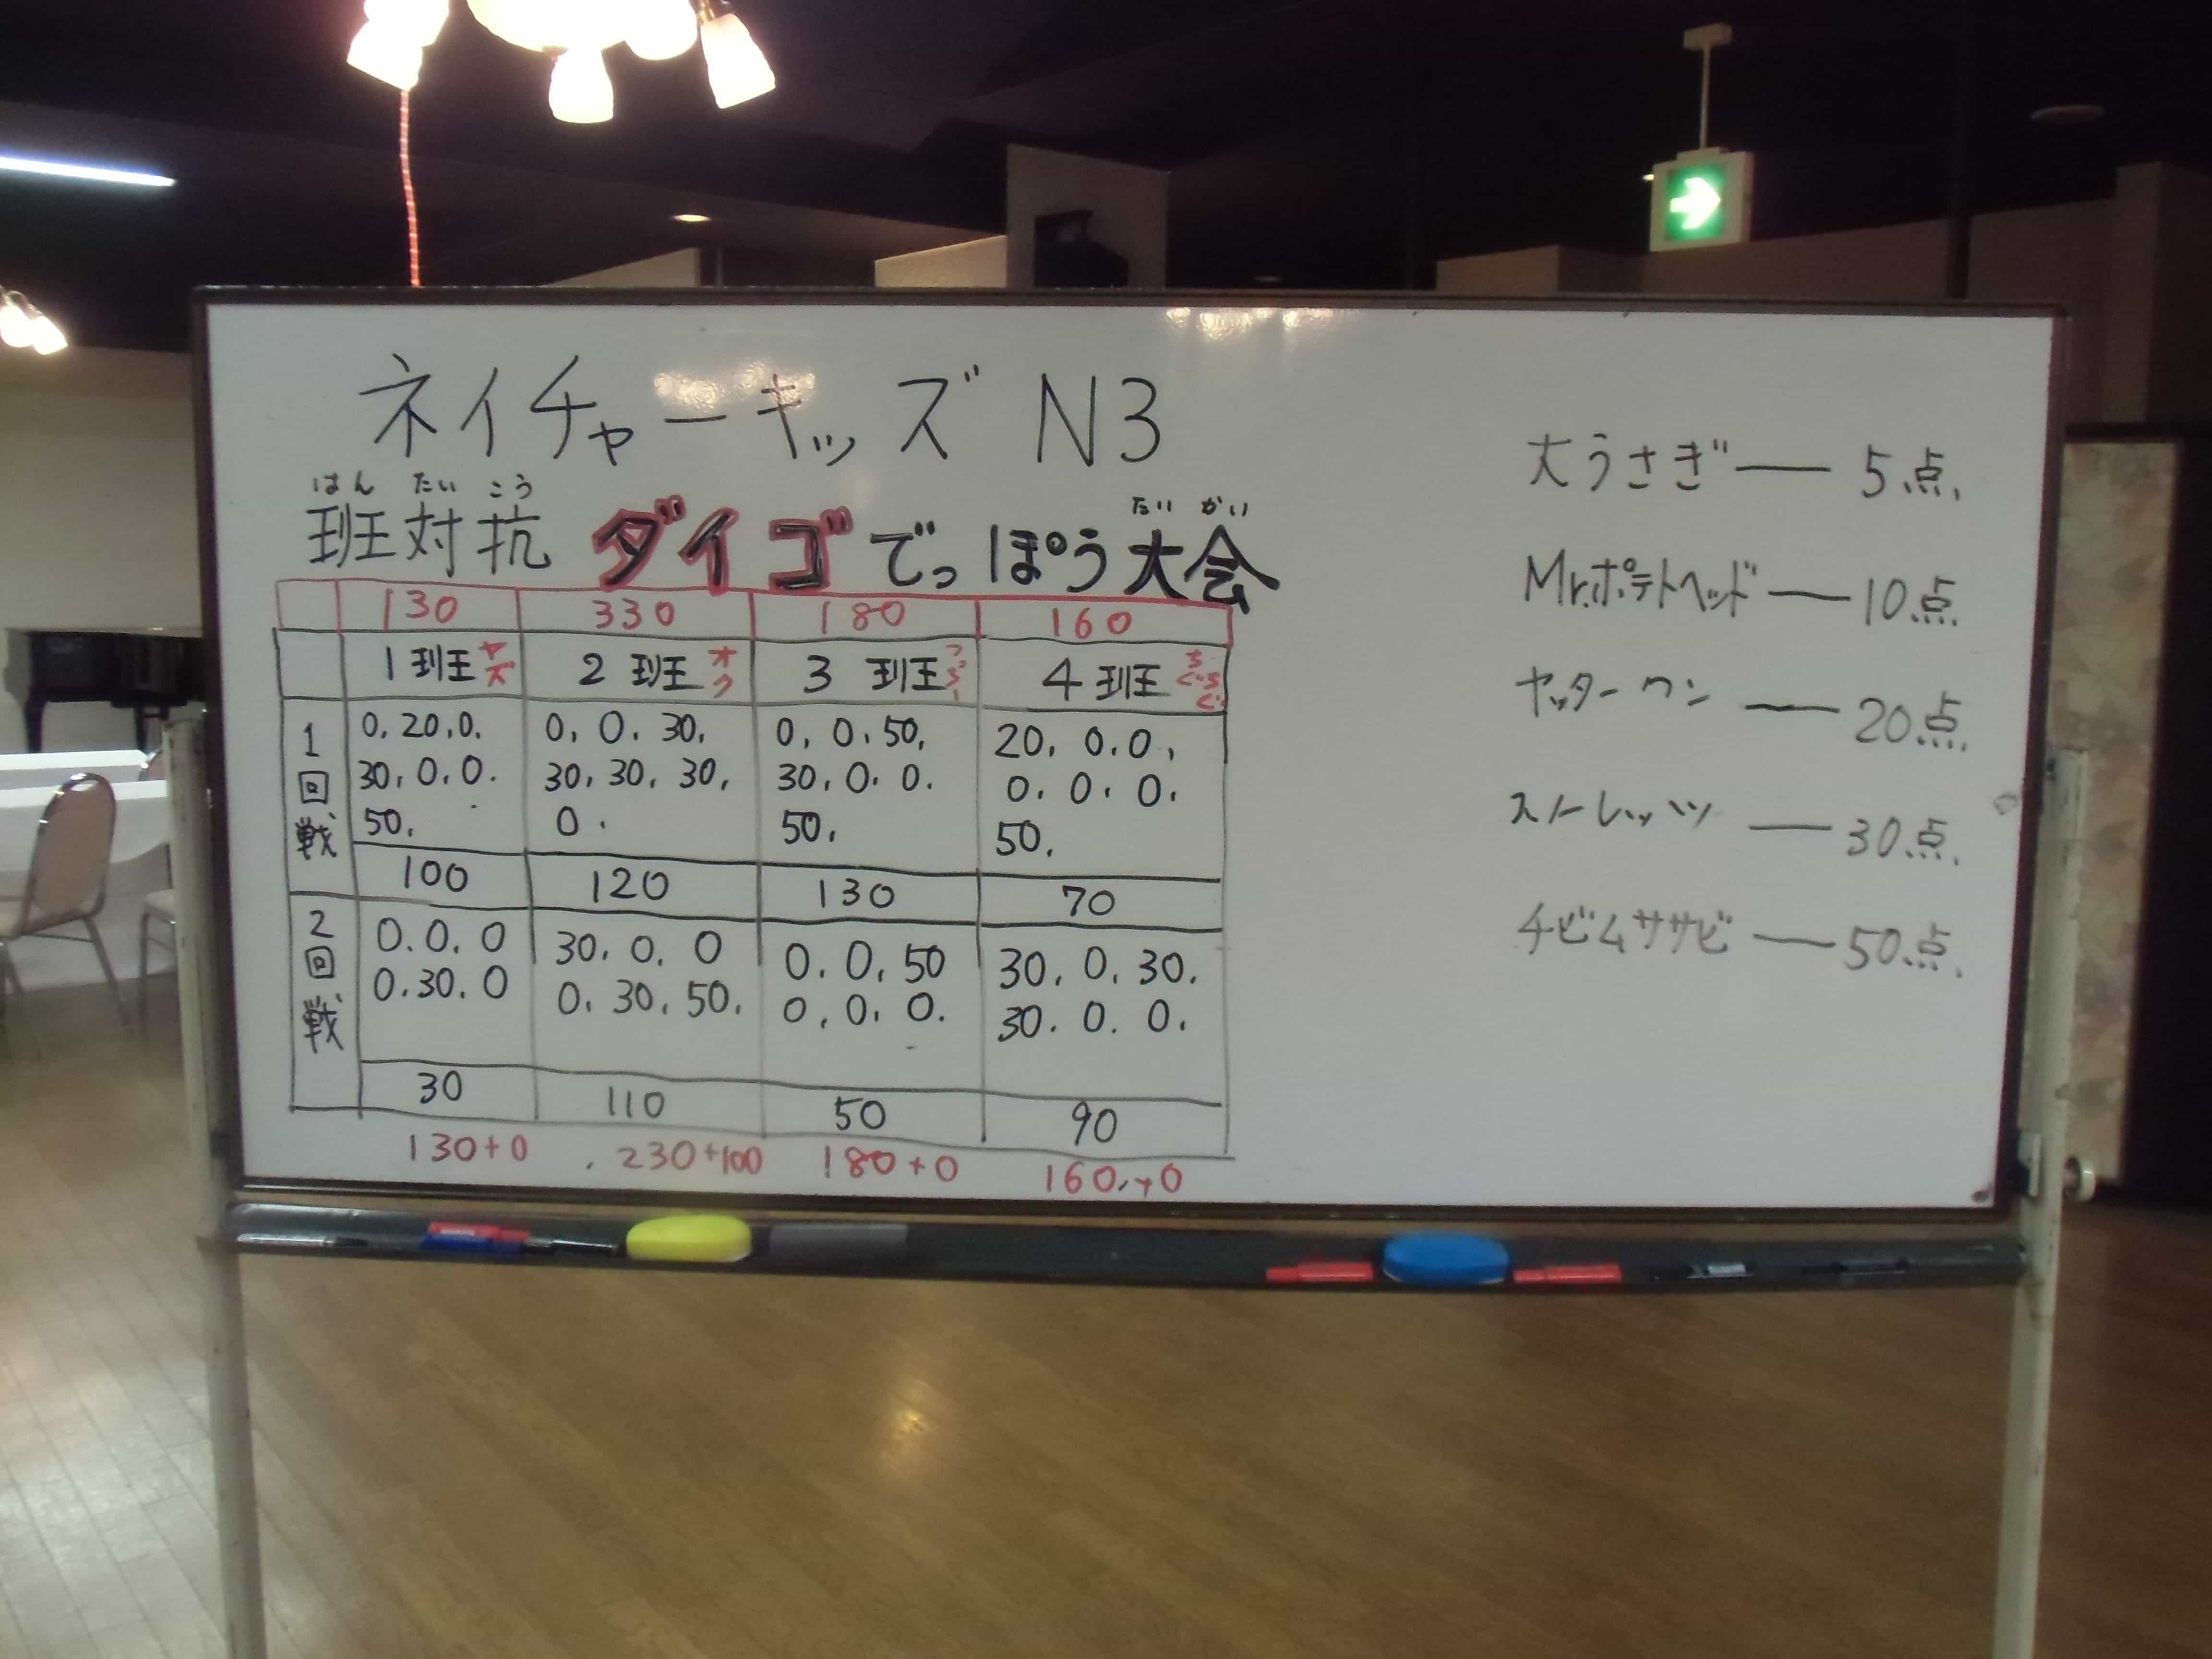 ネイチャーキッズ N3
はん たい こう たい かい
班対抗 ダイゴでっぽう大会
130 330 180 160
1班 ヤズ 2班 オク 3班 4班 ちぐちぐ
1回戦
0. 20. 0. 0. 0. 30. 0. 0. 50. 20. 0. 0.
30. 0. 0. 30. 30. 30. 30. 0. 0. 0. 0. 0.
50. 0. 50. 50.
100 120 130 70
2回戦
0. 0. 0 30. 0. 0 0. 0. 50 30. 0. 30.
0. 30. 0 0. 30. 50. 0. 0. 0. 30. 0. 0.
30 110 50 90
130+0 230+100 180+0 160+0
大うさぎ ― 5点
Mr.ポテトヘッド ― 10点
ヤッターワン ― 20点
ストレッツ ― 30点
チビムササビ ― 50点